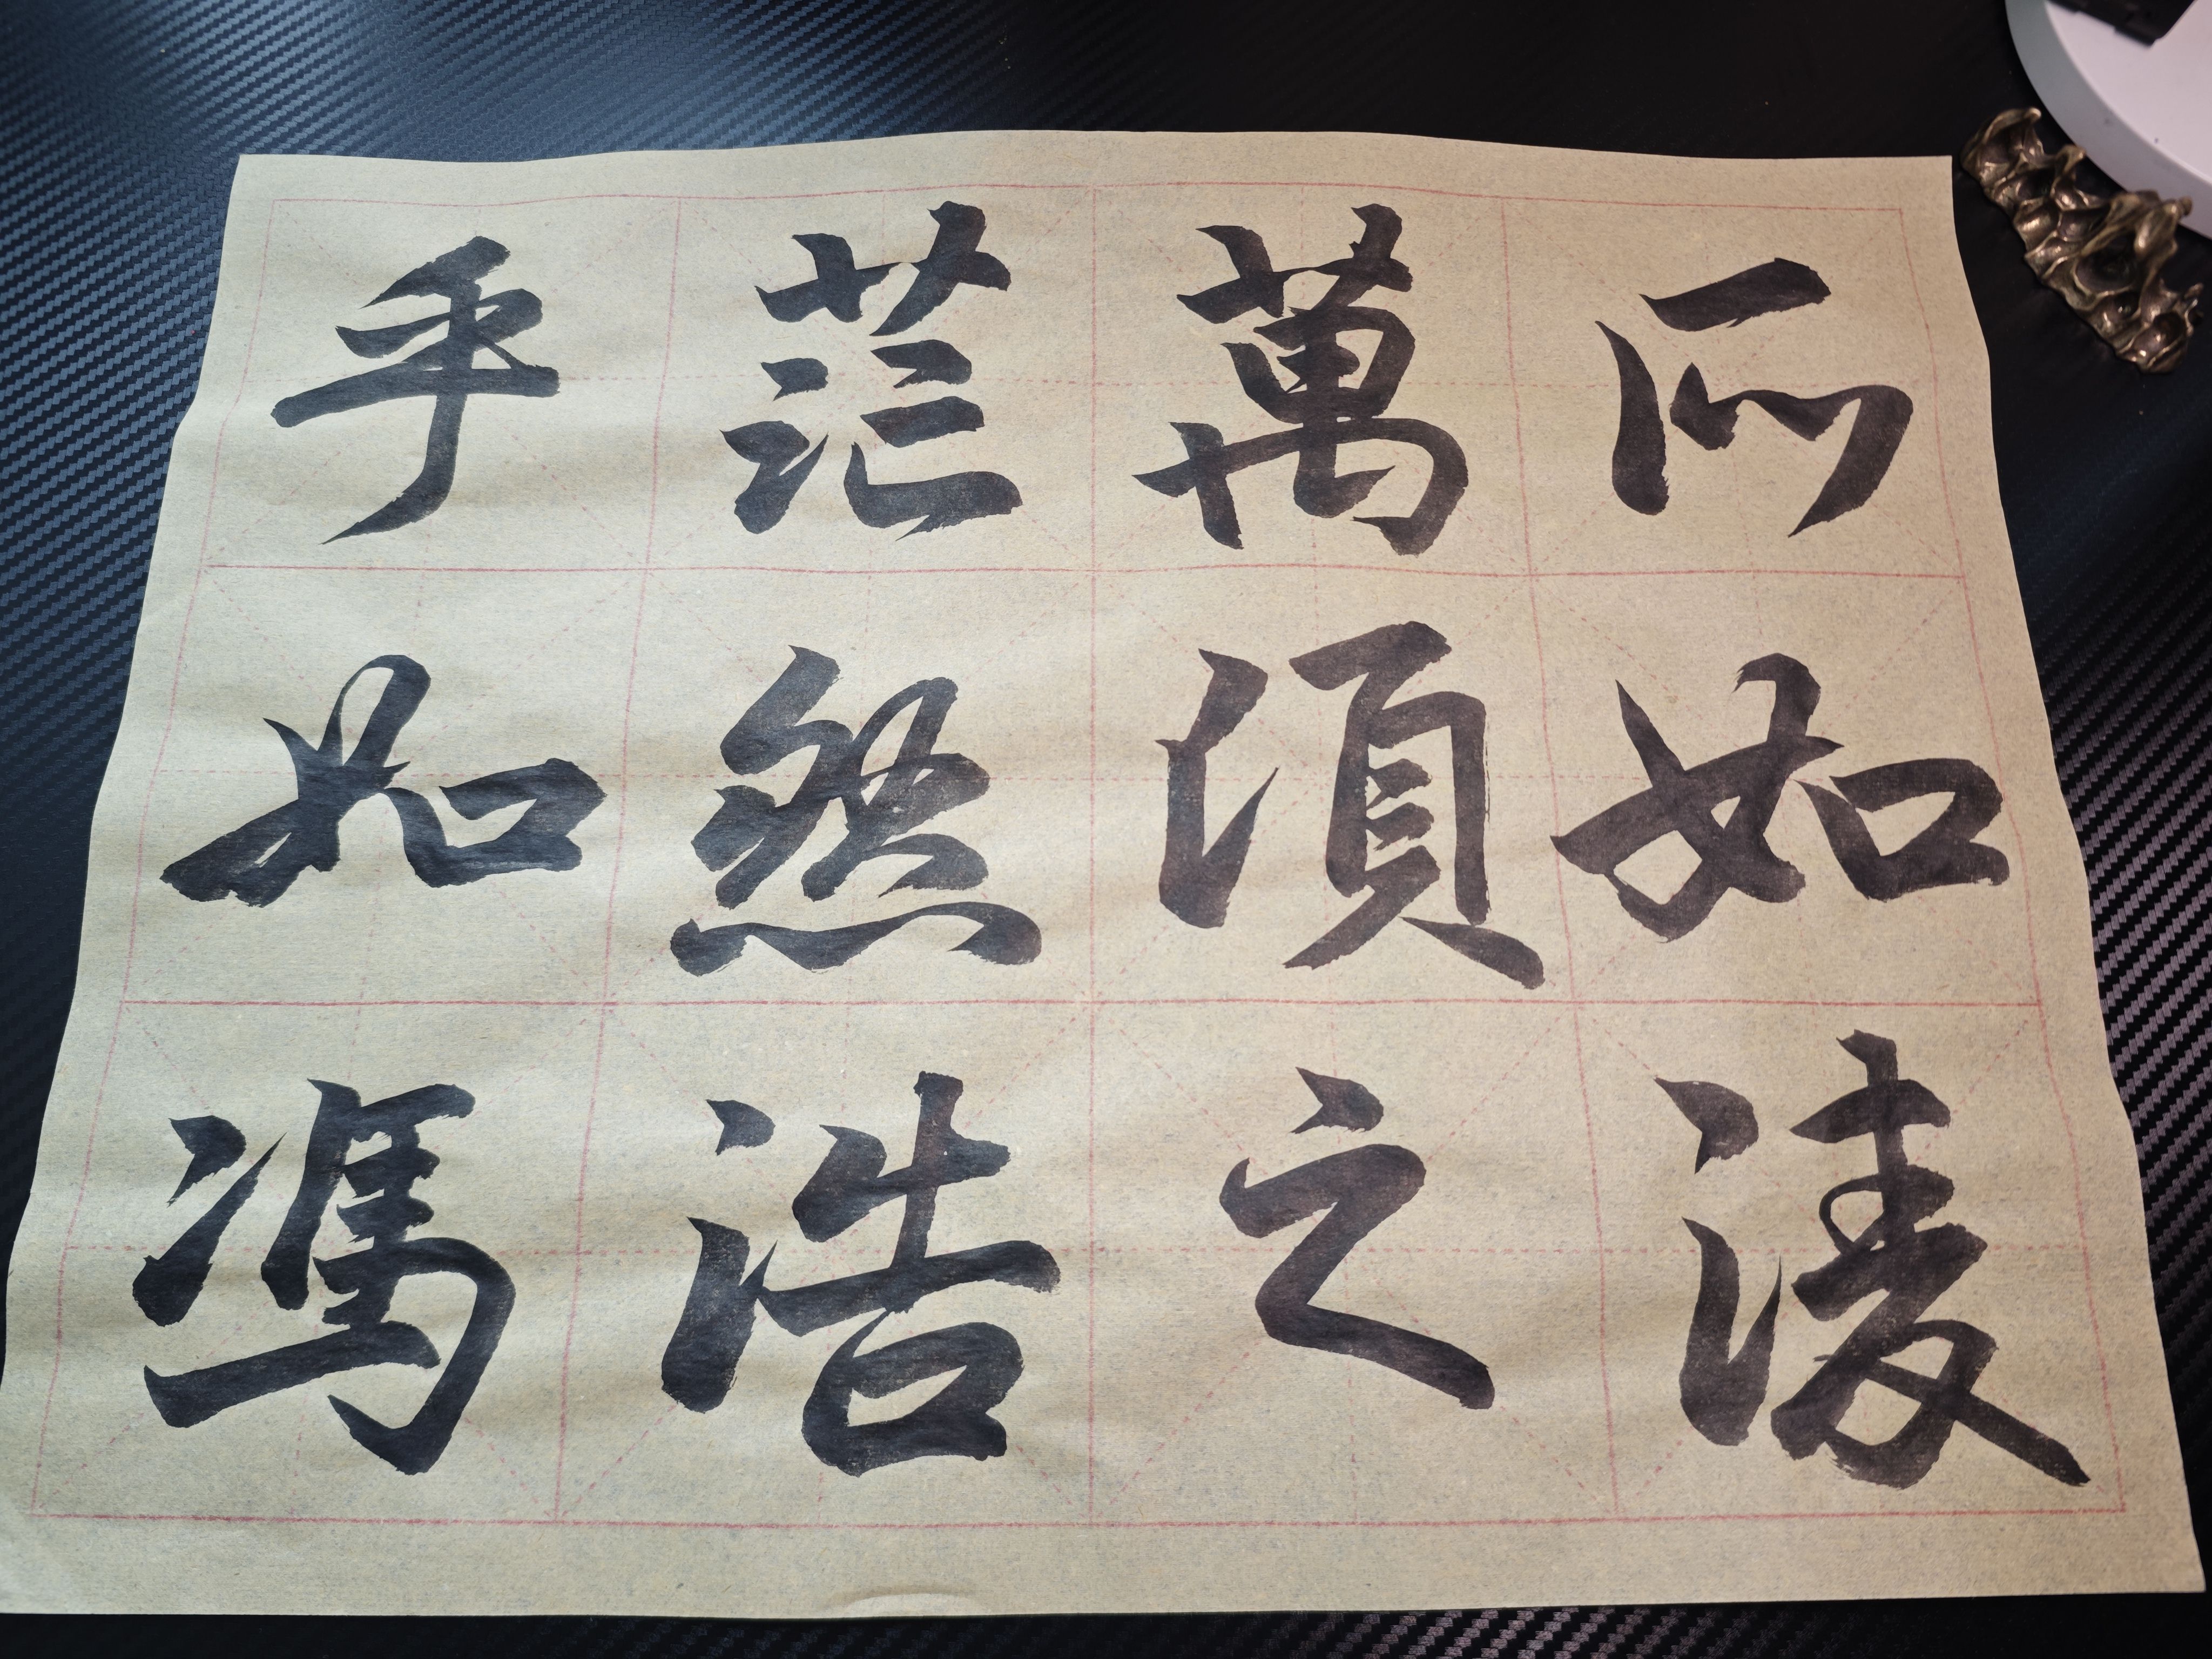 所如淩
萬頃之
茫然浩
乎如馮